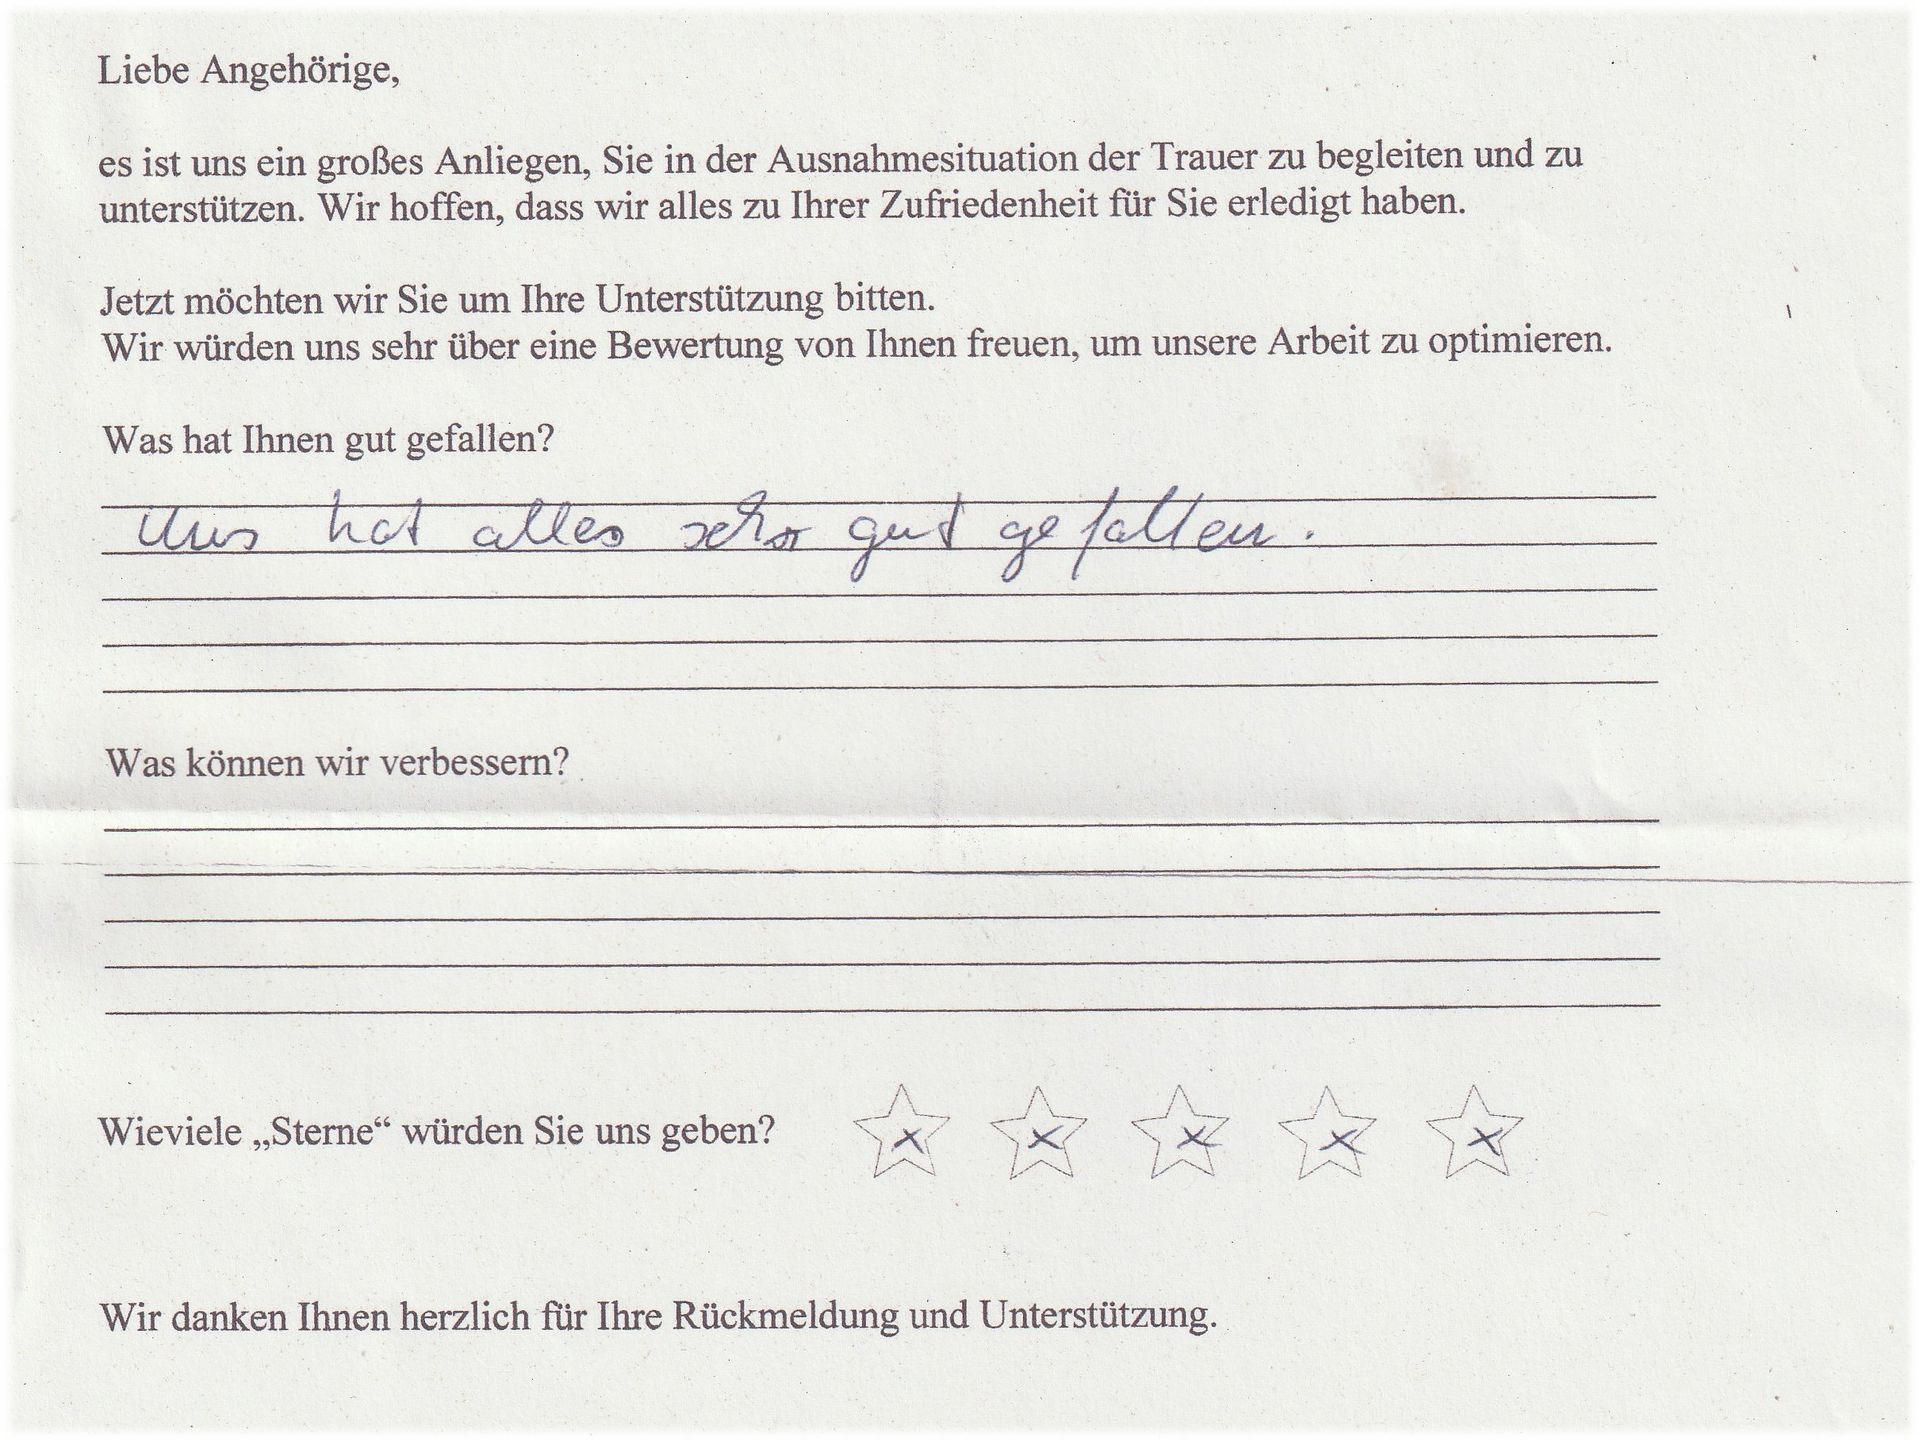 Liebe Angehörige,
es ist uns ein großes Anliegen, Sie in der Ausnahmesituation der Trauer zu begleiten und zu
unterstützen. Wir hoffen, dass wir alles zu Ihrer Zufriedenheit für Sie erledigt haben.
Jetzt möchten wir Sie um Ihre Unterstützung bitten.
Wir würden uns sehr über eine Bewertung von Ihnen freuen, um unsere Arbeit zu optimieren.
Was hat Ihnen gut gefallen?
Uns hat alles sehr gut gefallen.
Was können wir verbessern?
Wieviele „Sterne“ würden Sie uns geben? x x x x x
Wir danken Ihnen herzlich für Ihre Rückmeldung und Unterstützung.